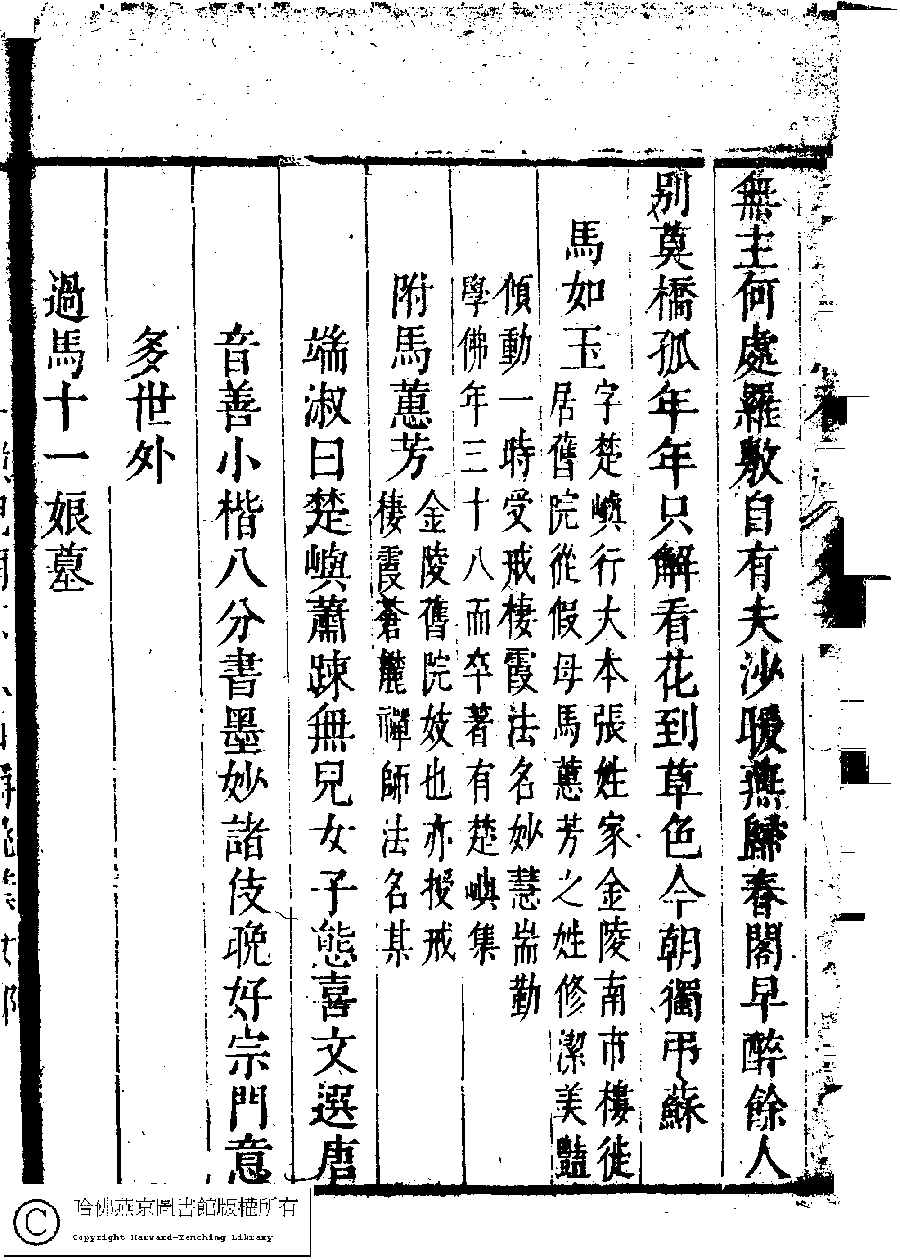 無主何處羅敷自有夫沙暖燕歸春閣早醉餘人
别奠橋孤年年只解看花到草色今朝獨弔蘇
馬如玉
字楚嶼行大本張姓家金陵南市樓徙
居舊院從假母馬蕙芳之姓修潔美豔
傾動一時受戒棲霞法名妙慧耑勤
學佛年三十八而卒著有楚嶼集
附馬蕙芳
金陵舊院妓也亦授戒
棲霞蒼麓禪師法名某
端淑曰楚嶼蕭踈無兒女子態喜文選唐
音善小楷八分書墨妙諸伎晩好宗門意
多世外
過馬十一娘墓
哈佛燕京圖書館版權所有
Copyright Harvard-Yenching Library